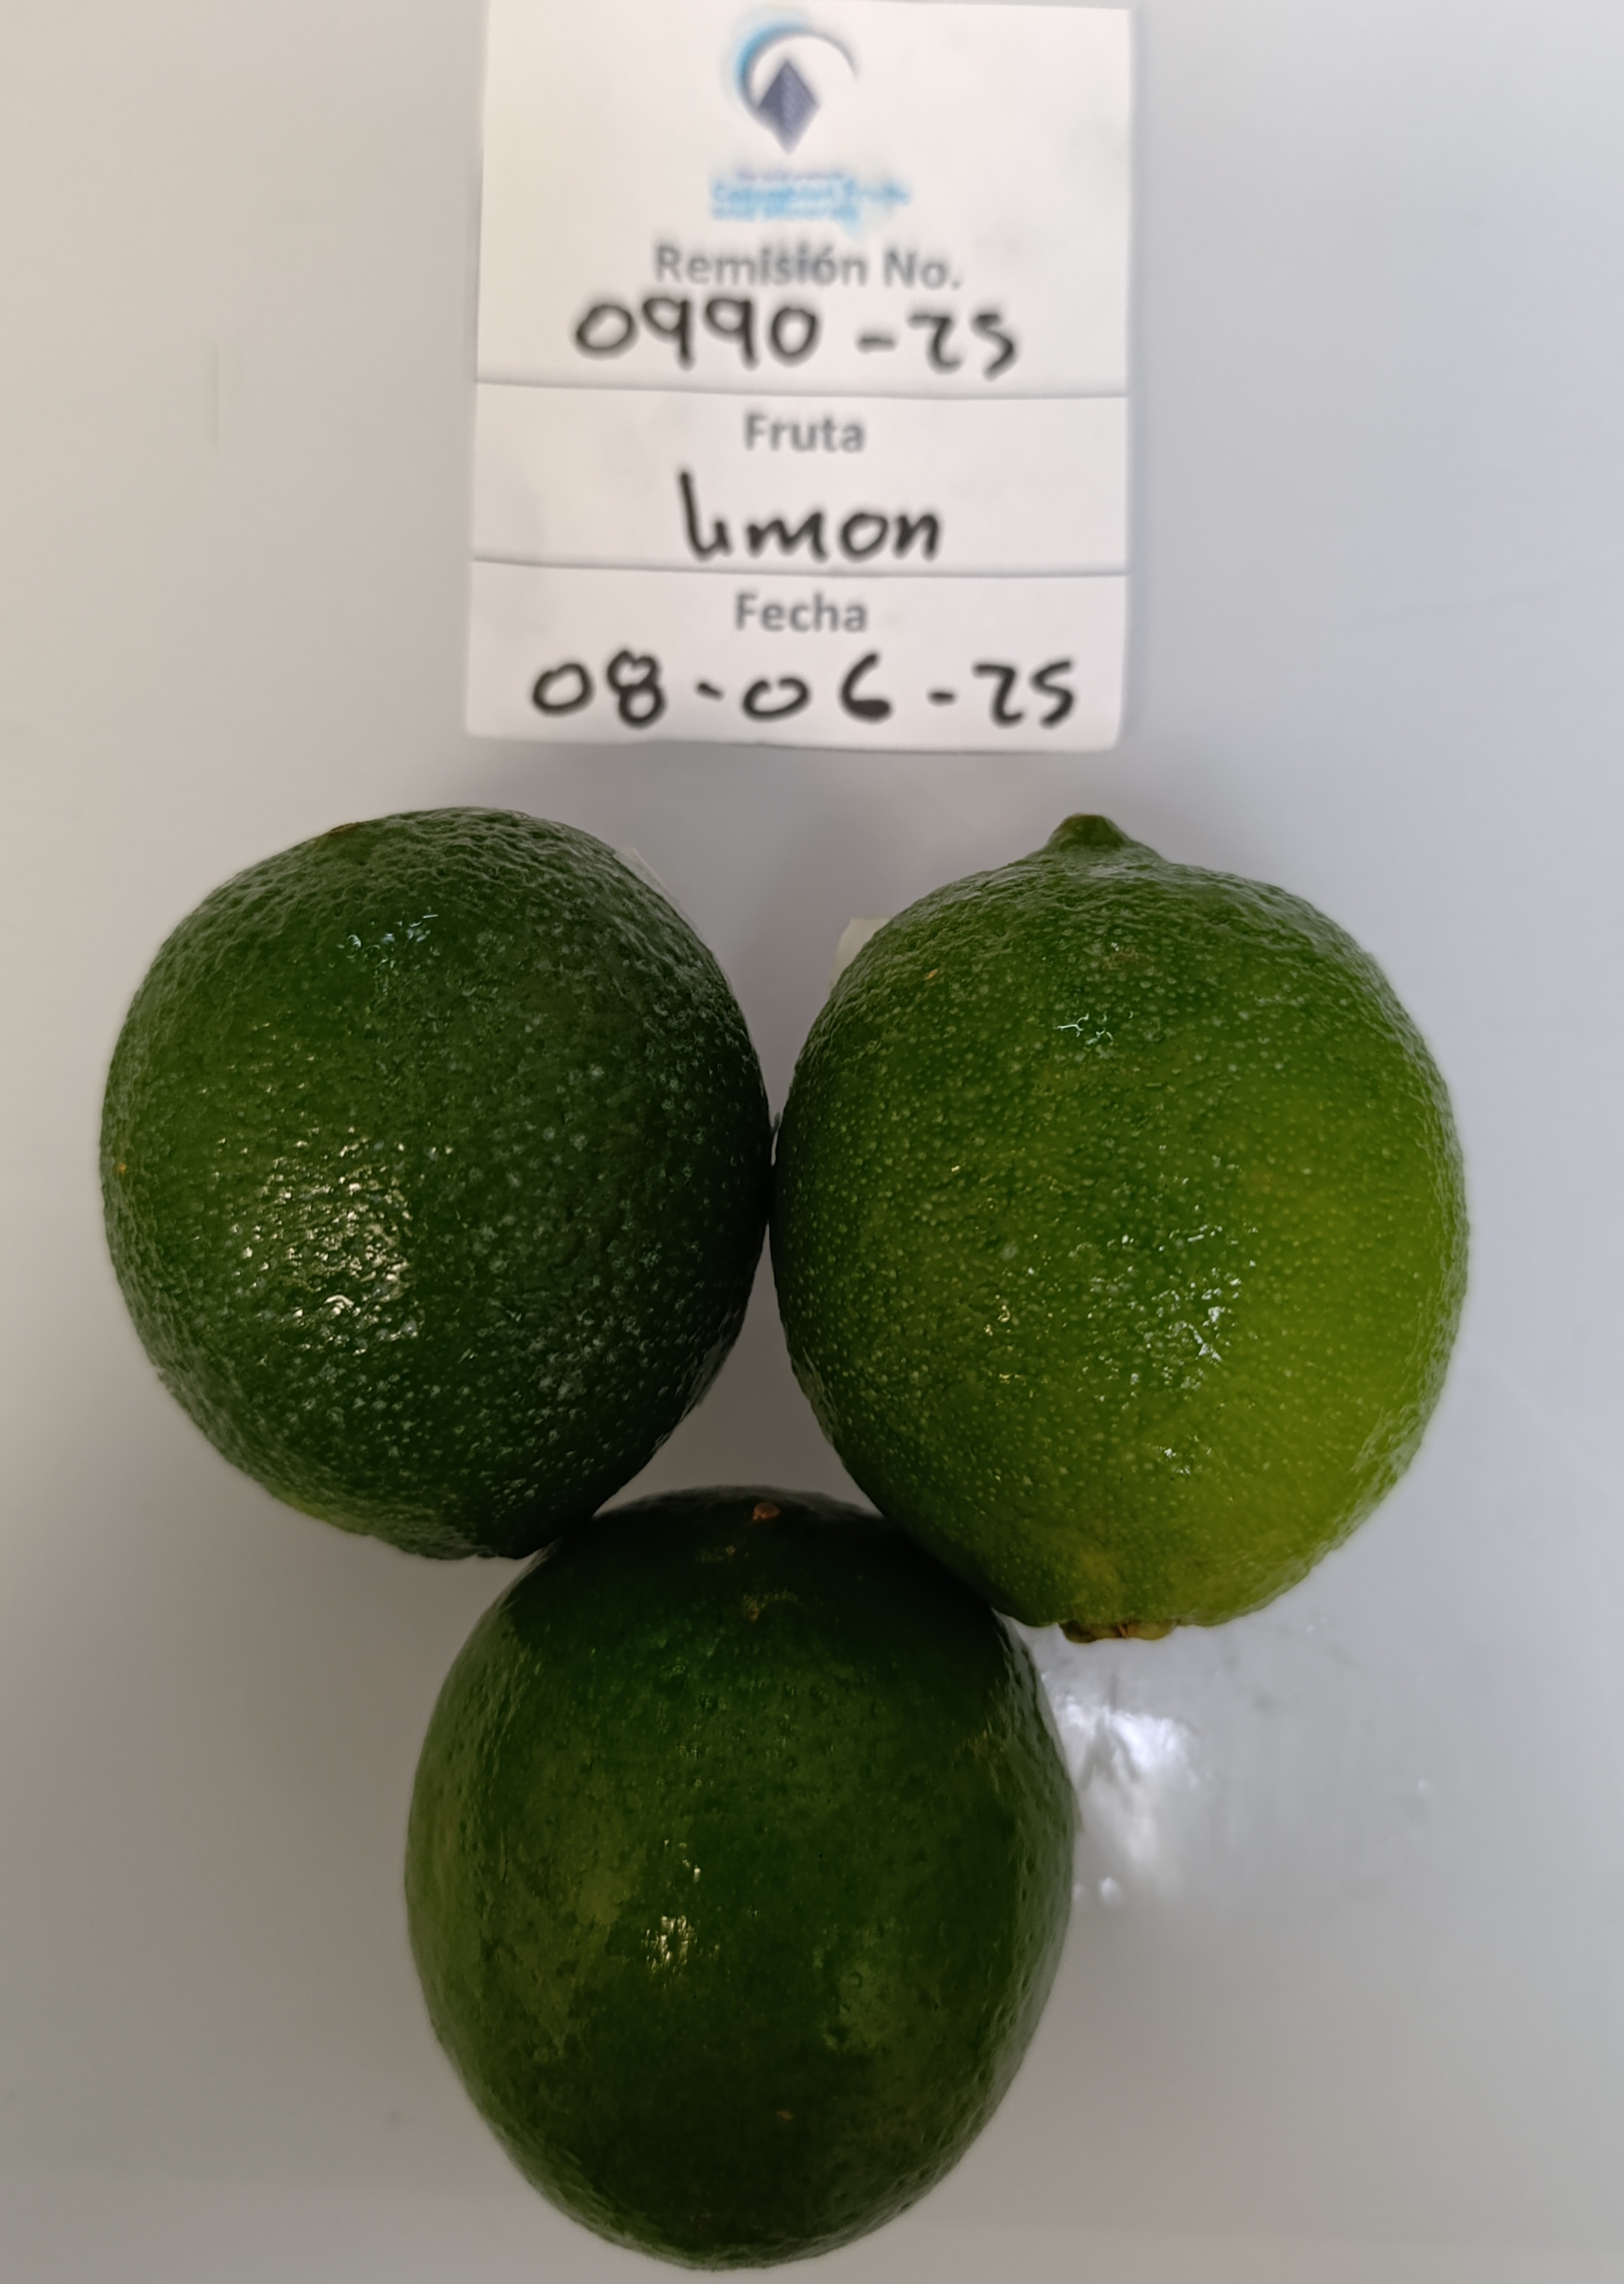 Remisión No.
0990-25
Fruta
limon
Fecha
08-06-25